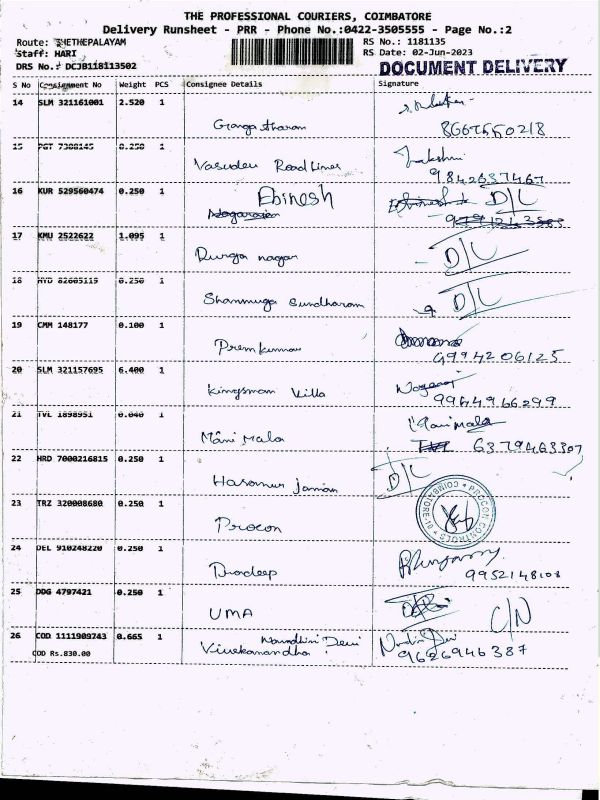 THE PROFESSIONAL COURIERS, COIMBATORE
Delivery Runsheet - PRR - Phone No.:0422-3505555 - Page No.:2
Route: THETHEPALAYAM RS No.: 1181135
Staff: HARI RS Date: 02-Jun-2023
DRS No.: DCJB118113502 DOCUMENT DELIVERY
S No Consignment No Weight PCS Consignee Details Signature
14 SLM 321161001 2.520 1
Ganga tharan 8667550218
15 PGT 7300145 0.250 1
Vasudev Road Lines Lakshmi
9842637467
16 KUR 529560474 0.250 1 Ebinesh D/L
17 KMU 2522622 1.095 1
Durga nagar D/L
18 HYD 82605119 0.250 1
Shanmuga Sundharam D/L
19 CMM 148177 0.100 1
Prem kumar 9994206125
20 SLM 321157695 6.400 1
Kingsman Villa 9964966299
21 TVL 1898951 0.040 1 Mani Mala
Mani Mala 6379463307
22 HRD 7000216815 0.250 1 D/L
23 TRZ 320008680 0.250 1
Procon PROCON CONTROLS COIMBATORE
24 DEL 910248220 0.250 1
Pradeep 9952148108
25 DDG 4797421 0.250 1
UMA C/N
26 COD 1111909743 0.665 1 Nandhini Devi
COD Rs.830.00 Vivekanandha 9626946387